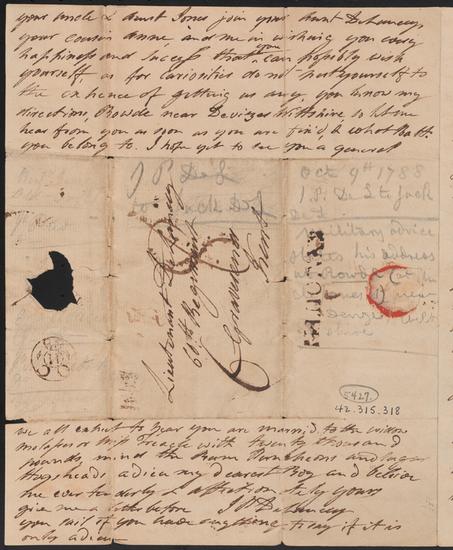 your uncle & aunt Jones join your aunt Delancey
your cousin anne and me in wishing you every
happiness and Success that you can possibly wish
yourself, as for curiosities do not hurt yourself to
the expence of getting us any, you know my
direction, Rowde near Devizes Wiltshire, so let me
hear from you as soon as you are fix'd, & what Batt:
you belong to. I hope yet to see you a general
J P De L
to Jack DeL
Oct 9th 1788
J. P. De L to Jack
Military advice
states his address
as Rowde
near
Devizes Wilt
shire
Lieutenant Delancey
60th Regiment
Gravesend
Kent
5427.
42.315.318
we all expect to hear you are married to the widow
molasses or Miss Treacle with twenty thousand
pounds, mind the Rum Puncheons and Sugar
Hogsheads adieu my dearest Boy and believe
me ever tenderly & affectionately yours
give me a letter before J P Delancey
you sail if you have anything to say if it is
only adieu